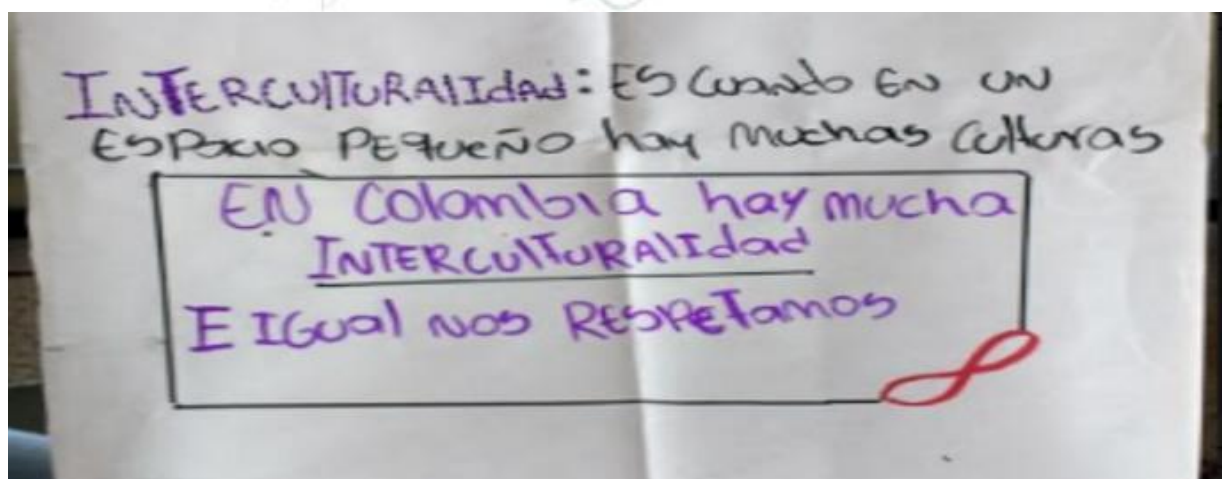 INTERCULTURALIdad: ES CUANdo EN UN
ESPacio PEqUEÑO hay muchas culturas
EN Colombia hay mucha
INTERCULTURALIdad
E IGual NOS RESPETamos